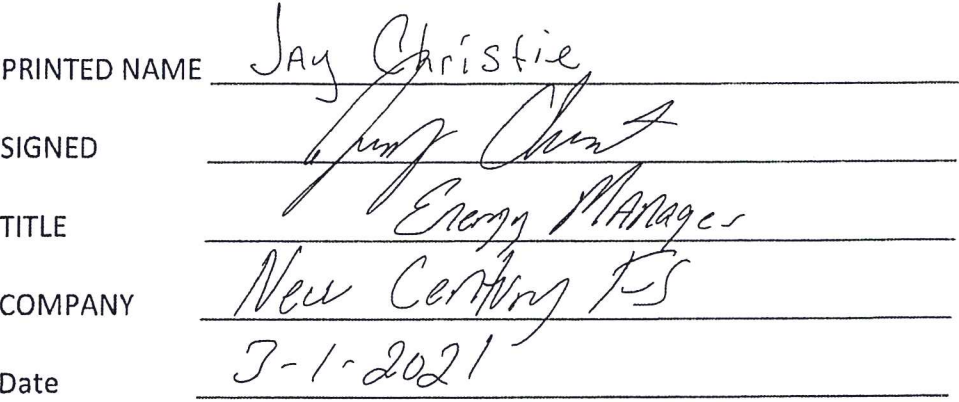 PRINTED NAME Jay Christie
SIGNED
TITLE Energy Manager
COMPANY New Century FS
Date 3-1-2021